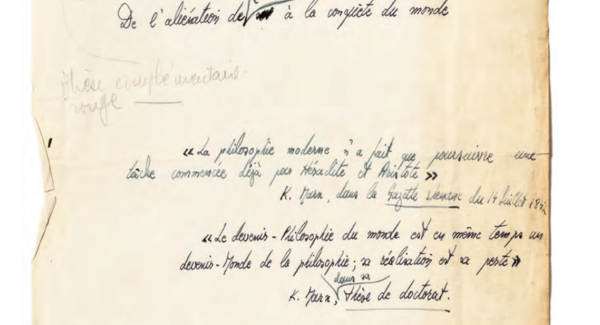 De l'aliénation de à la conquête du monde
thèse complémentaire
rouge
« La philosophie moderne n'a fait que poursuivre une
tâche commencée déjà par Héraclite et Aristote »
K. Marx, dans la Gazette rhénane du 14 Juillet 1842
« Le devenir-Philosophie du monde est en même temps un
devenir-Monde de la philosophie ; sa réalisation est sa perte »
depuis sa
K. Marx, Thèse de doctorat.